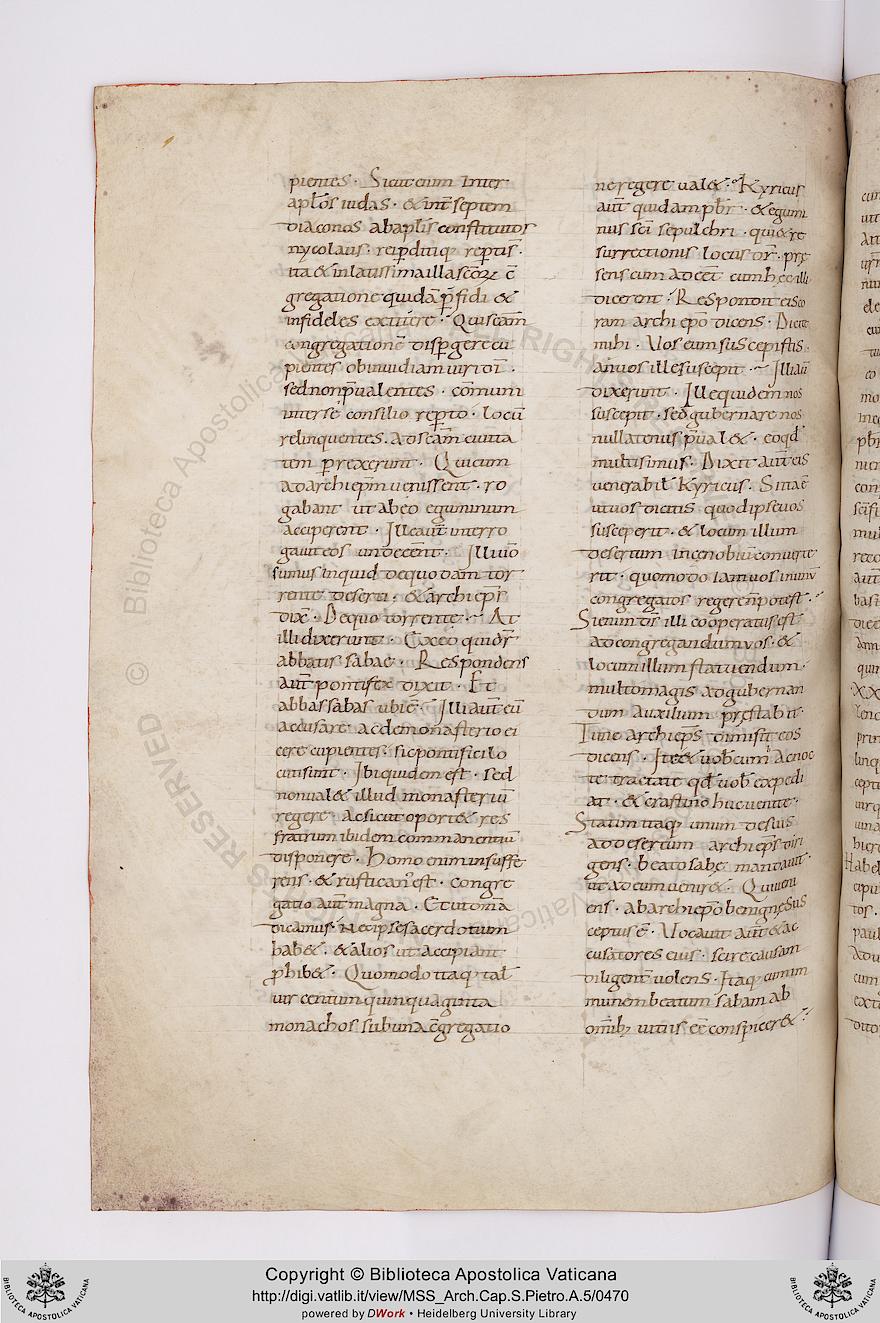 pientes · Sicut enim inter
apłos iudas · & int̄ septem
diaconos ab apłis constitutos
nycolaus · rei p̄ditiq; rep̄tis ·
ita & in latissima illa scōꝝ c̄
gregatione quidā p̄fidi &
infideles extitere · Qui scām
congregationē disp̄gere cu
pientes ob inuidiam uiri dī ·
sed non p̄ualentes · cōmuni
inter se consilio rep̄to · locū
relinquentes · ad scām ciuita
tem perrexerunt · Qui cum
ad archiep̄m uenissent · ro
gabant ut ab eo egumenum
acciperent · Ille aut̄ interro
gauit eos unde cēnt · Illi uīo
sumus inquid de quodam tor
rente deserti · & archiep̄s
dix̄ · De quo torrente · At
illi dixerunt · Ex eo qui dr̄
abbatis sabae · Respondens
aut̄ pontifex dixit · Et
abbas sabas ubi ē · Illi aut̄ eū
accusare ac de monasterio ei
cere cupientes · sic pontifici lo
cuti sunt · Ibi quidem est · sed
non ual& illud monasteriū
regere · ac sicut oport& res
fratrum ibidem commanentiū
disponere · Homo enim insuffe
rens · & rusticanꝰ est · Congre
gatio aut̄ magna · Et ut omīa
dicamus · Nec ipse sacerdotium
hab& · & alios ut accipiant
ꝓhib& · Quomodo itaq; tał
uir centum quinquaginta
monachos sub una c̄gregatio
ne regere ual& · Kyricus
aut̄ quidam pbr̄ · & egum
nus scī sepulchri · qui & re
surrectionis locus dr̄ · prę
sens cum adeēt cum hec illi
dicerent · Respondit eis co
ram archiep̄o dicens · Dicite
mihi · Uos eum suscepistis ·
an uos ille suscepit · Illi aū
dixerunt · Ille quidem nos
suscepit · sed gubernare nos
nullatenus p̄ual& · eo qd̄
multi simus · Dixit aut̄ eis
uenerabił Kyricus · Si ita ē
ut uos dicitis quod ipse uos
susceperit · & locum illum
desertum in cenobiū conuerte
rit · quomodo iam uos in unū
congregatos regere n̄ potest ·
Si enim dī̄s illi cooperatus est
ad congregandum uos · &
locum illum statuendum ·
multo magis ad gubernan
dum auxilium pręstabit ·
Tunc archiep̄s dimisit eos
dicens · Ite & uob̄cum ac noc
te tractate qd̄ uob̄ expedi
at · & crastino huc uenite ·
Statim itaq; unum de suis
ad desertum archiep̄s diri
gens · beato sabę mandauit ·
ut ad eum uenir& · Qui ueni
ens · ab archiep̄o benigne sus
ceptus ē · Uocauit aut̄ & ac
cusatores eius · scire causam
diligent̄ uolens · Itaq; cum im
munem beatum sabam ab
omīb; uitiis eē conspicer& ·
Copyright © Biblioteca Apostolica Vaticana
http://digi.vatlib.it/view/MSS_Arch.Cap.S.Pietro.A.5/0470
powered by DWork • Heidelberg University Library